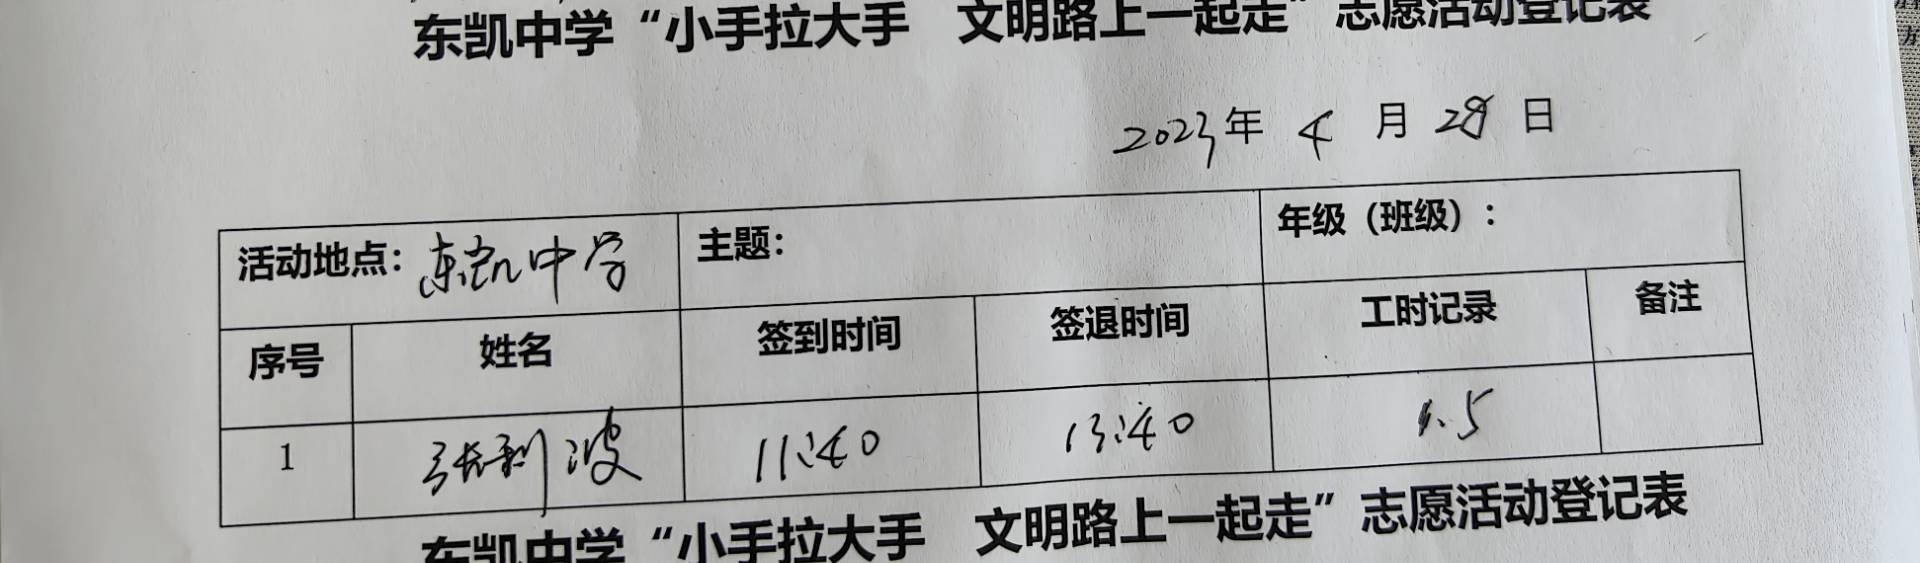 东凯中学“小手拉大手 文明路上一起走”志愿活动登记表
2023年 4 月 28 日
活动地点：东凯中学 主题： 年级（班级）：
序号 姓名 签到时间 签退时间 工时记录 备注
1 张利波 11:40 13:40 1.5
东凯中学“小手拉大手 文明路上一起走”志愿活动登记表